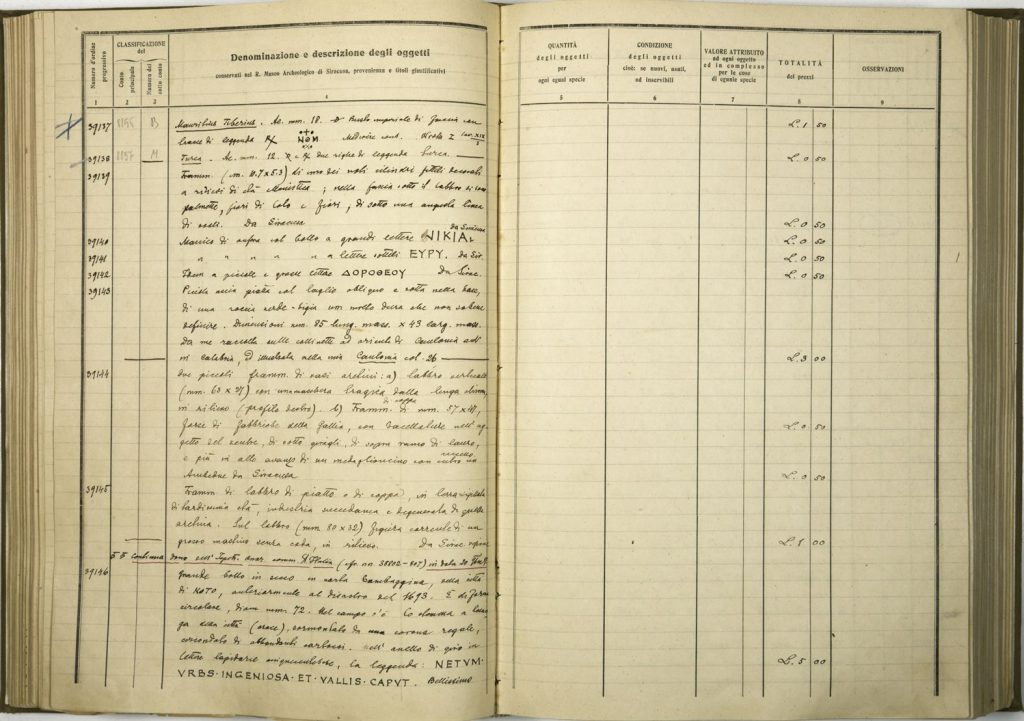 Numero d'ordine progressivo
CLASSIFICAZIONE del
Conto principale
Numero del sotto conto
Denominazione e descrizione degli oggetti
conservati nel R. Museo Archeologico di Siracusa, provenienza e titoli giustificativi
QUANTITÀ degli oggetti per ogni egual specie
CONDIZIONE degli oggetti cioè: se nuovi, usati, od inservibili
VALORE ATTRIBUITO ad ogni oggetto od in complesso per le cose di eguale specie
TOTALITÀ dei prezzi
OSSERVAZIONI
1 2 3 4 5 6 7 8 9
39137 B Mauritius Tiberius. Ae. mm. 18. Busto imperiale di faccia con L. 1 50
tracce di leggenda NOM Mediocre cons.
39138 M Turca. Ae. mm. 12. due righe di leggenda turca. L. 0 50
39139 Framm. (m. 11.7 x 5.3) di uno dei noti cilindri fittili decorati
a rilievi di età ; nella fascia sotto il labbro di
palmette, fiori di loto e fiori, di sotto una linea
di ovoli. Da Siracusa L. 0 50
39140 Manico di anfora col bollo a grandi lettere NIKIA da Siracusa L. 0 50
39141 " " " " " a lettere EYPY. da Sir. L. 0 50
39142 Idem a piccole e grosse lettere ΔΟΡΟΘΕΟΥ Da Sirac. L. 0 50
39143 Piccola ascia piatta col taglio obliquo e rotta nella base,
di una roccia verde-bigia molto dura che non saprei
definire. Dimensioni mm. 85 lung. mass. x 43 larg. mass.
Da me raccolta sulle collinette ad oriente di Caulonia
in Calabria, ed illustrata nella mia Caulonia col. 26 L. 3 00
39144 due piccoli framm. di vasi aretini: a) labbro verticale
(mm. 63 x 27) con una maschera tragica dalla lunga chioma,
in rilievo (profilo destro). b) Framm. di coppa di mm. 57 x
forse di fabbriche della Gallia, con baccellature nell'og- L. 0 50
getto del ventre, di sotto giragli, di sopra ramo di lauro,
e più in alto avanzo di un medaglioncino con
Ambedue da Siracusa L. 0 50
39145 Framm. di labbro di piatto o di coppa, in terra sigillata
di tardissima età, industria succedanea e degenerata di quella
aretina. Sul labbro (mm. 80 x 32) figura corrente di un
grosso maschio senza coda, in rilievo. Da Sirac. L. 1 00
dono dell'Ispett. onor. comm. (cfr. nn. 38802-807) in data 20
39146 Grande bollo in secco in carta bambagina, della città
di NOTO, anteriormente al disastro del 1693. È di forma
circolare, diam. mm. 72. Nel campo c'è lo stemma a
ga della città (croce), sormontato da una corona regale,
circondato di cartocci. Nell'anello di giro in
lettere lapidarie cinquecentesche, la leggenda: NETVM· L. 5 00
VRBS·INGENIOSA·ET·VALLIS·CAPVT. Bellissimo